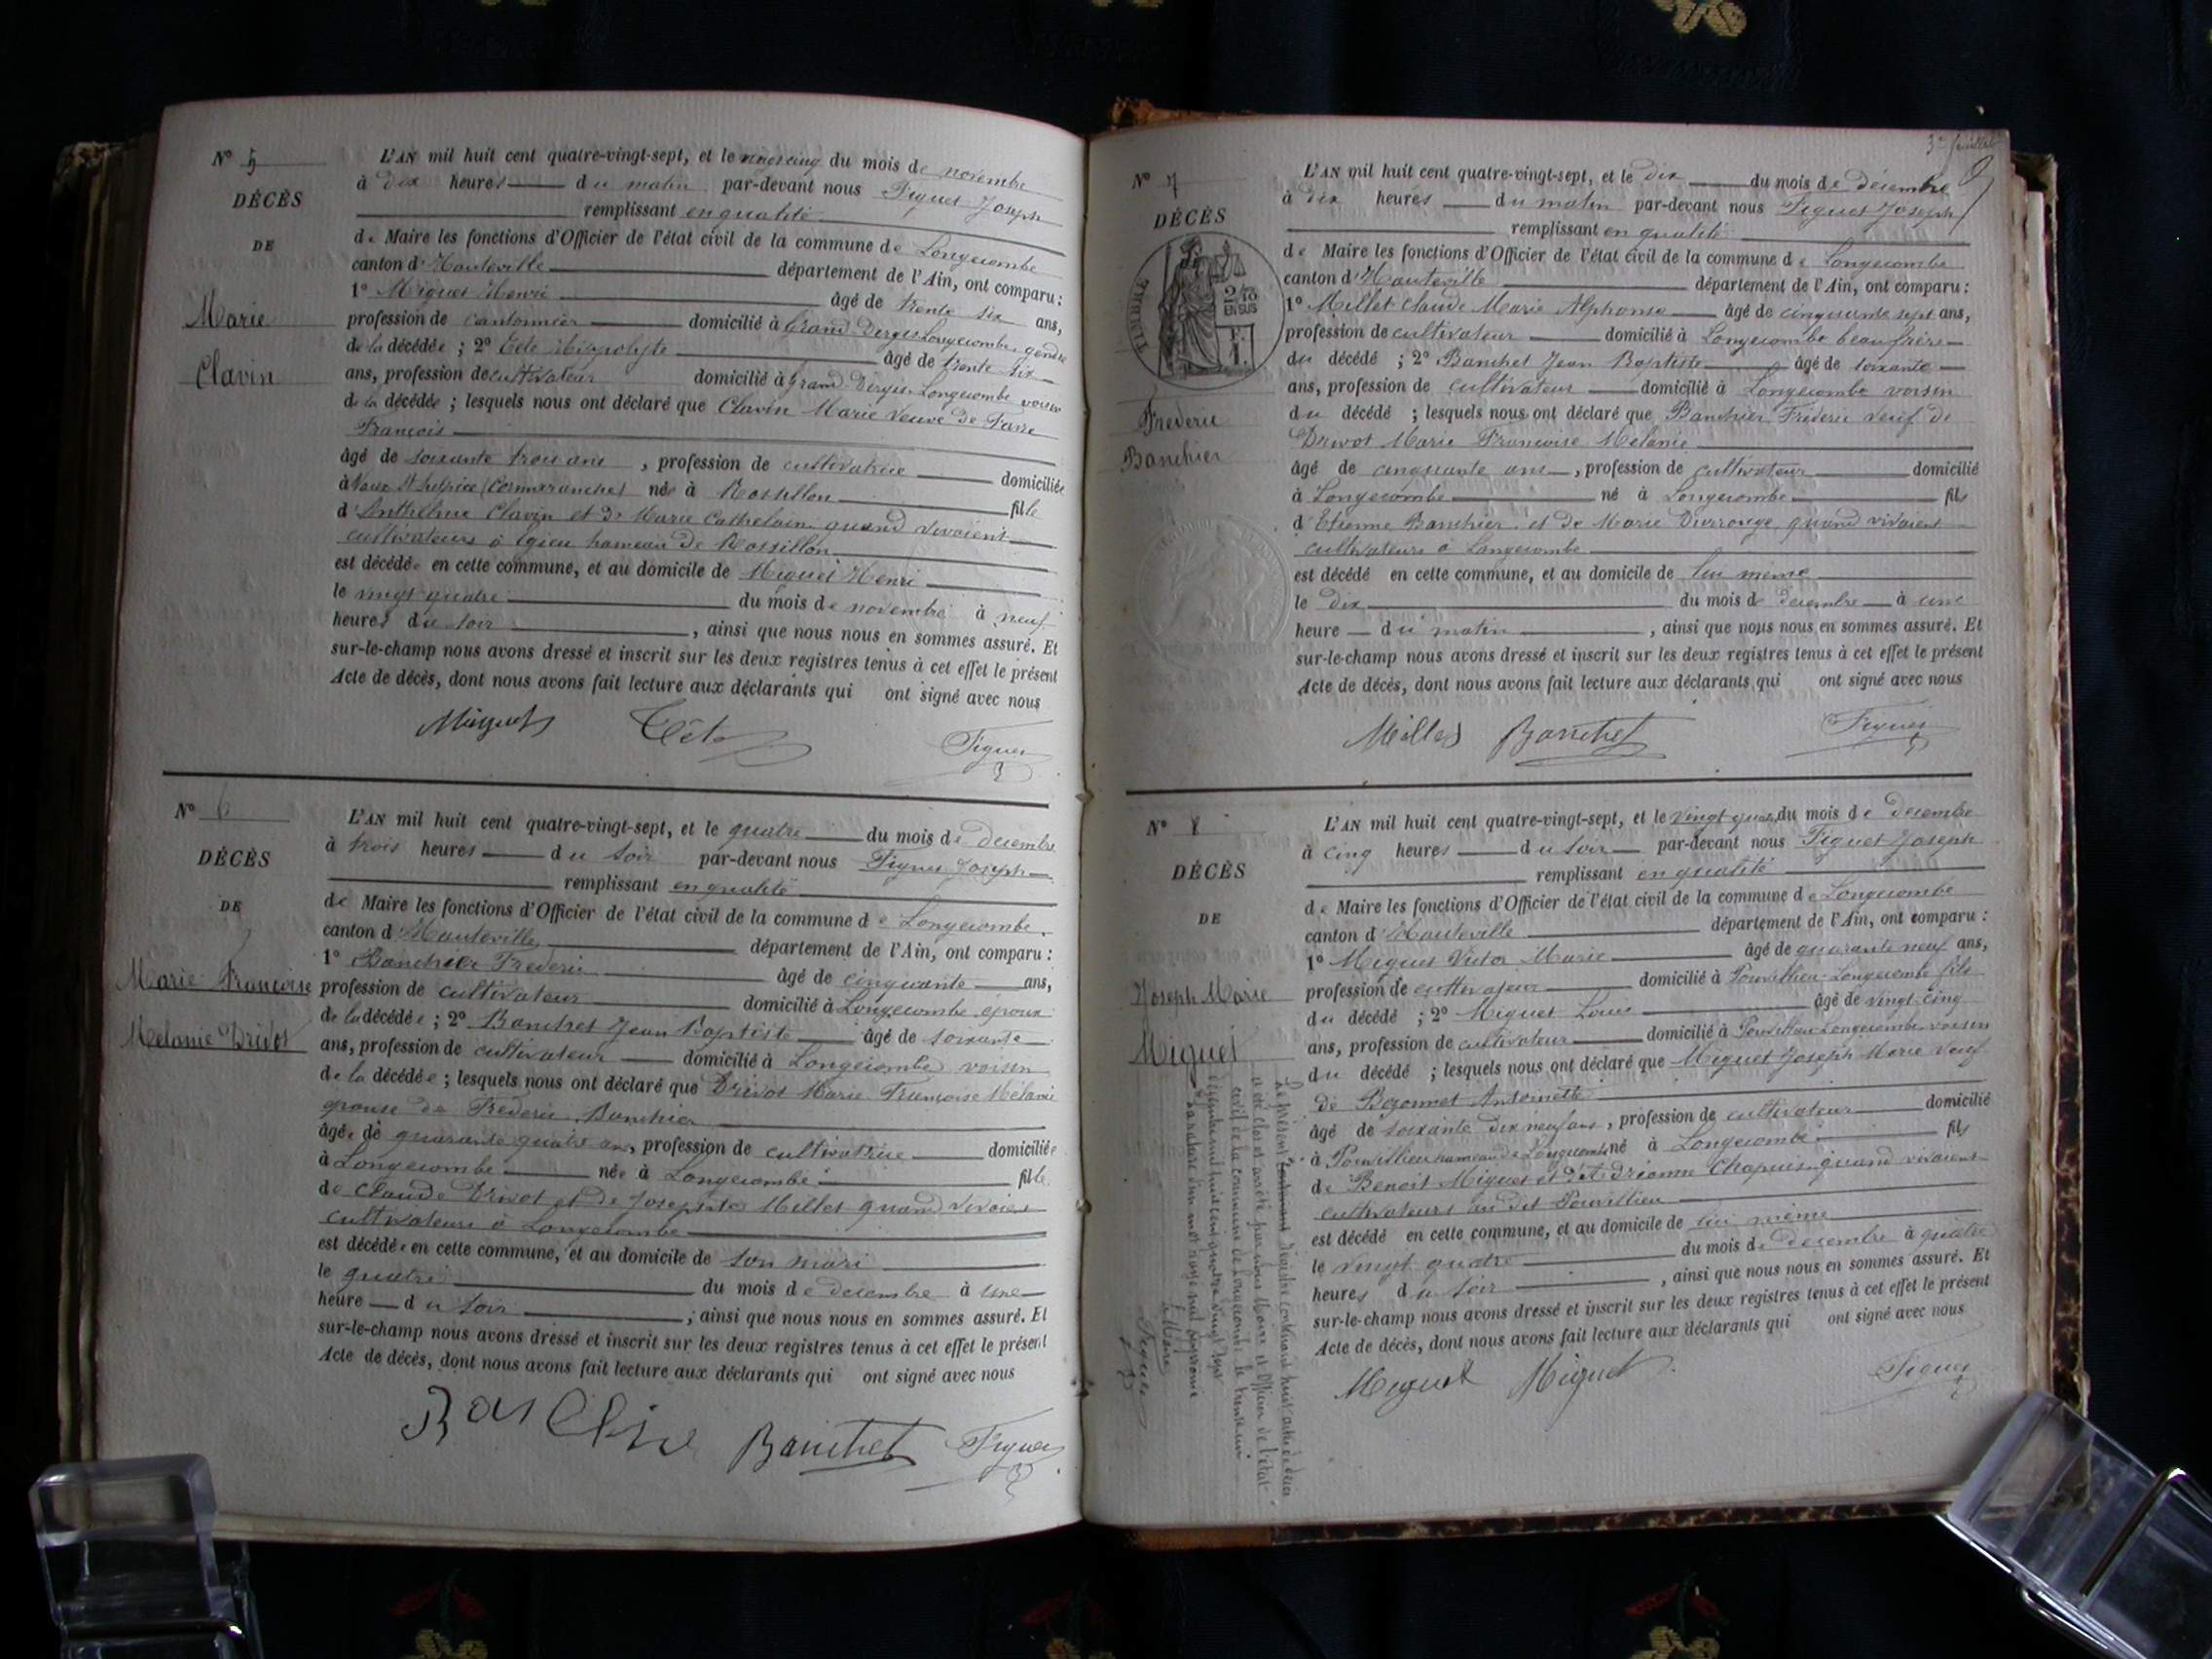 N° 5
DÉCÈS
DE
Marie
Clavin
L'AN mil huit cent quatre-vingt-sept, et le vingt cinq du mois de novembre
à dix heures du matin par-devant nous Figuet Joseph
remplissant en qualité
de Maire les fonctions d'Officier de l'état civil de la commune de Longecombe
canton d'Hauteville département de l'Ain, ont comparu :
1° Miguet Henri âgé de trente six ans,
profession de cantonnier domicilié à Grand Dergis Longecombe, gendre
de la décédée ; 2° Tête Hippolyte âgé de trente six
ans, profession de cultivateur domicilié à Grand Dergis Longecombe voisin
de la décédée ; lesquels nous ont déclaré que Clavin Marie veuve de Favre
François
âgé de soixante trois ans, profession de cultivatrice domiciliée
à Vaux St Sulpice (Cormaranche) née à Rossillon fille
d'Anthelme Clavin et de Marie Cathelain quand vivaient
cultivateurs à Egieu hameau de Rossillon
est décédée en cette commune, et au domicile de Miguet Henri
le vingt quatre du mois de novembre à neuf
heures du soir, ainsi que nous nous en sommes assuré. Et
sur-le-champ nous avons dressé et inscrit sur les deux registres tenus à cet effet le présent
Acte de décès, dont nous avons fait lecture aux déclarants qui ont signé avec nous
Miguet Tête Figuet
N° 6
DÉCÈS
DE
Marie Françoise
Melanie Drivot
L'AN mil huit cent quatre-vingt-sept, et le quatre du mois de decembre
à trois heures du soir par-devant nous Figuet Joseph
remplissant en qualité
de Maire les fonctions d'Officier de l'état civil de la commune de Longecombe
canton d'Hauteville département de l'Ain, ont comparu :
1° Banchier Frederic âgé de cinquante ans,
profession de cultivateur domicilié à Longecombe époux
de la décédée ; 2° Banchet Jean Baptiste âgé de soixante
ans, profession de cultivateur domicilié à Longecombe voisin
de la décédée ; lesquels nous ont déclaré que Drivot Marie Françoise Mélanie
épouse de Frederic Banchier
âgée de quarante quatre ans, profession de cultivatrice domiciliée
à Longecombe née à Longecombe fille
de Claude Drivot et de Josephte Millet quand vivaient
cultivateurs à Longecombe
est décédée en cette commune, et au domicile de son mari
le quatre du mois de decembre à une
heure du soir ; ainsi que nous nous en sommes assuré. Et
sur-le-champ nous avons dressé et inscrit sur les deux registres tenus à cet effet le présent
Acte de décès, dont nous avons fait lecture aux déclarants qui ont signé avec nous
Banchet Figuet
3me feuillet
N° 7
DÉCÈS
TIMBRE
2/10
EN SUS
Frederic
Banchier
L'AN mil huit cent quatre-vingt-sept, et le dix du mois de décembre
à dix heures du matin par-devant nous Figuet Joseph
remplissant en qualité
de Maire les fonctions d'Officier de l'état civil de la commune de Longecombe
canton d'Hauteville département de l'Ain, ont comparu :
1° Millet Claude Marie Alphonse âgé de cinquante sept ans,
profession de cultivateur domicilié à Longecombe beau frère
du décédé ; 2° Banchet Jean Baptiste âgé de soixante
ans, profession de cultivateur domicilié à Longecombe voisin
du décédé ; lesquels nous ont déclaré que Banchier Frederic veuf de
Drivot Marie Françoise Mélanie
âgé de cinquante ans, profession de cultivateur domicilié
à Longecombe né à Longecombe fils
d'Etienne Banchier et de Marie quand vivaient
cultivateurs à Longecombe
est décédé en cette commune, et au domicile de lui même
le dix du mois de decembre à une
heure du matin, ainsi que nous nous en sommes assuré. Et
sur-le-champ nous avons dressé et inscrit sur les deux registres tenus à cet effet le présent
Acte de décès, dont nous avons fait lecture aux déclarants qui ont signé avec nous
Millet Banchet Figuet
N° 8
DÉCÈS
DE
Joseph Marie
Miguet
L'AN mil huit cent quatre-vingt-sept, et le vingt quatre du mois de decembre
à cinq heures du soir par-devant nous Figuet Joseph
remplissant en qualité
de Maire les fonctions d'Officier de l'état civil de la commune de Longecombe
canton d'Hauteville département de l'Ain, ont comparu :
1° Miguet Victor Marie âgé de quarante neuf ans,
profession de cultivateur domicilié à Pouvillieu Longecombe fils
du décédé ; 2° Miguet Louis âgé de vingt cinq
ans, profession de cultivateur domicilié à Pouvillieu Longecombe voisin
du décédé ; lesquels nous ont déclaré que Miguet Joseph Marie veuf
de Bozonnet Antoinette
âgé de soixante dix neuf ans, profession de cultivateur domicilié
à Pouvillieu hameau de Longecombe né à Longecombe fils
de Benoit Miguet et d'Adrianne Chapuis quand vivaient
cultivateurs au dit Pouvillieu
est décédé en cette commune, et au domicile de lui même
le vingt quatre du mois de decembre à quatre
heures du soir, ainsi que nous nous en sommes assuré. Et
sur-le-champ nous avons dressé et inscrit sur les deux registres tenus à cet effet le présent
Acte de décès, dont nous avons fait lecture aux déclarants qui ont signé avec nous
Miguet Miguet Figuet
Le présent registre contenant huit actes de décès
a été clos et arrêté par nous Maire et Officier de l'état
civil de la commune de Longecombe le trente un
décembre mil huit cent quatre vingt sept
la rature d'un mot rayé nul approuvé
Le Maire
Figuet